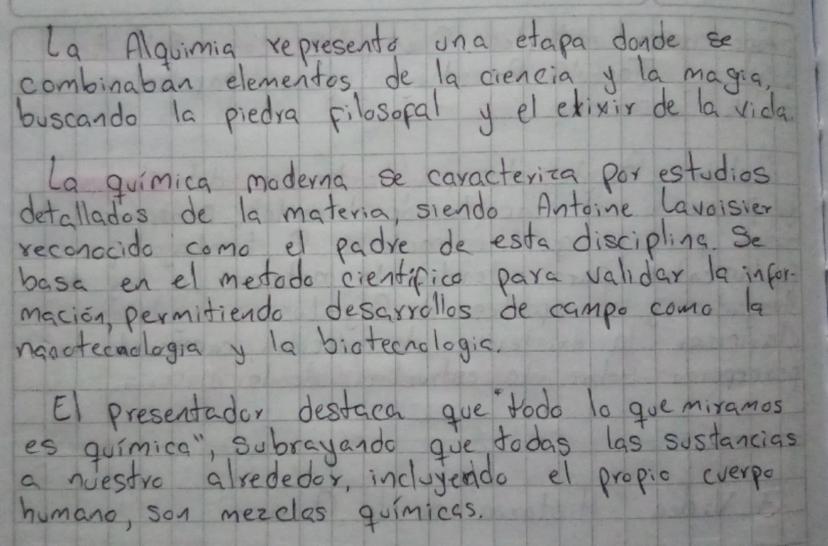 La Alquimia representó una etapa donde se
combinaban elementos de la ciencia y la magia,
buscando la piedra filosofal y el elixir de la vida.
La química moderna se caracteriza por estudios
detallados de la materia, siendo Antoine Lavoisier
reconocido como el padre de esta disciplina. Se
basa en el metodo cientifico para validar la infor-
mación, permitiendo desarrollos de campo como la
nanotecnologia y la biotecnologia.
El presentador destaca que "todo lo que miramos
es química", subrayando que todas las sustancias
a nuestro alrededor, incluyendo el propio cuerpo
humano, son mezclas químicas.